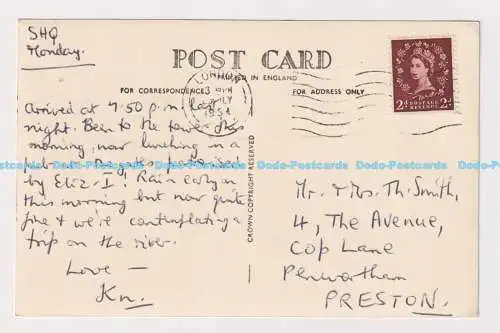 SHQ
Monday.
POST CARD
PRINTED IN ENGLAND
FOR CORRESPONDENCE
FOR ADDRESS ONLY
LONDON
3
JLY
1954
2d POSTAGE REVENUE 2d
Arrived at 7.50 p.m. last
night. Been to the tower this
morning, now lunching in a
pub
by Eliz. I! Rain early on
this morning but now quite
fine & we're contemplating a
trip on the river.
Love —
Kn.
CROWN COPYRIGHT RESERVED
Mr. & Mrs. Th. Smith,
4, The Avenue,
Cop Lane
Penwortham
PRESTON.
Dodo-Postcards Dodo-Postcards Dodo-Postcards Dodo-Postcards Dodo-Postcards Dodo-Postcards